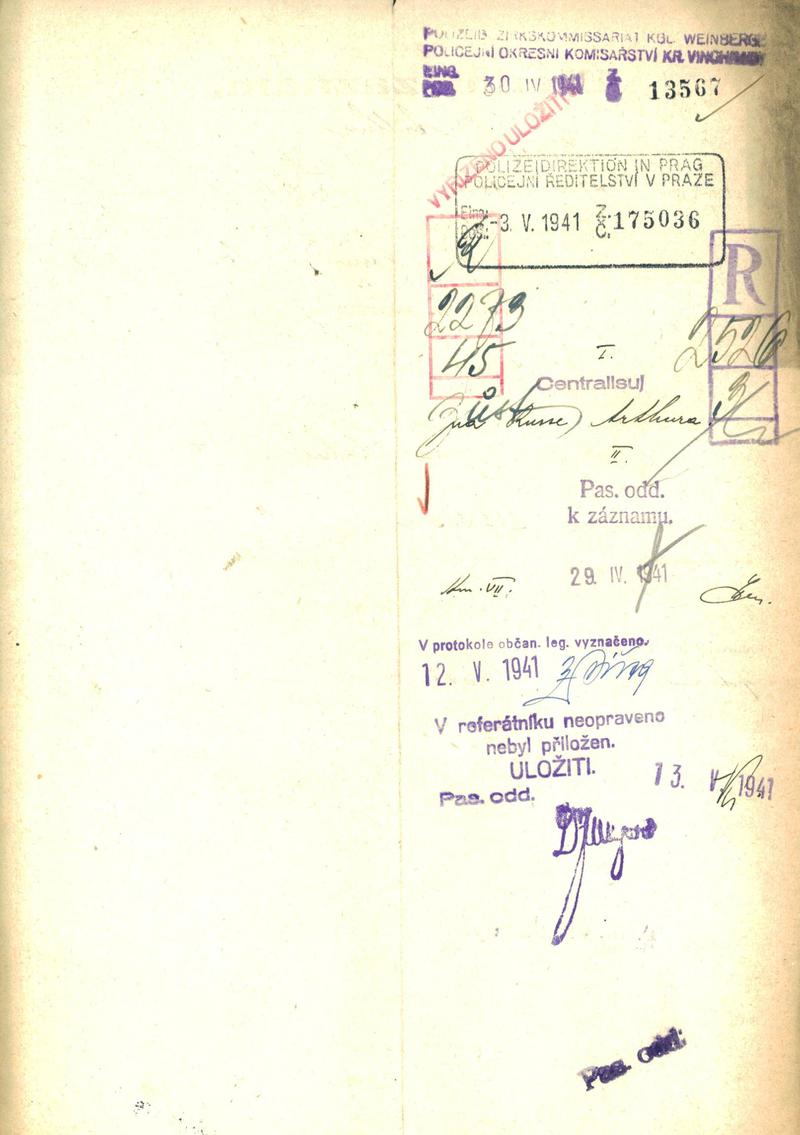 POLIZEIBEZIRKSKOMMISSARIAT KGL. WEINBERGE
POLICEJNÍ OKRESNÍ KOMISAŘSTVÍ KR. VINOHRADY
EING.
POD.
30 IV 1941 Z Č 13567
VYŘÍZENO ULOŽITI
POLIZEIDIREKTION IN PRAG
POLICEJNÍ ŘEDITELSTVÍ V PRAZE
Eing.:
Doš.: -3. V. 1941 Z. Č. 175036
R
2273
45
R
2526
3
I.
Centralisuj
Arthura
II.
Pas. odd.
k záznamu.
29. IV. 1941
VII.
V protokole občan. leg. vyznačeno.
12. V. 1941
V referátníku neopraveno
nebyl přiložen.
ULOŽITI.
13. V. 1941
Pas. odd.
Pas. odd.